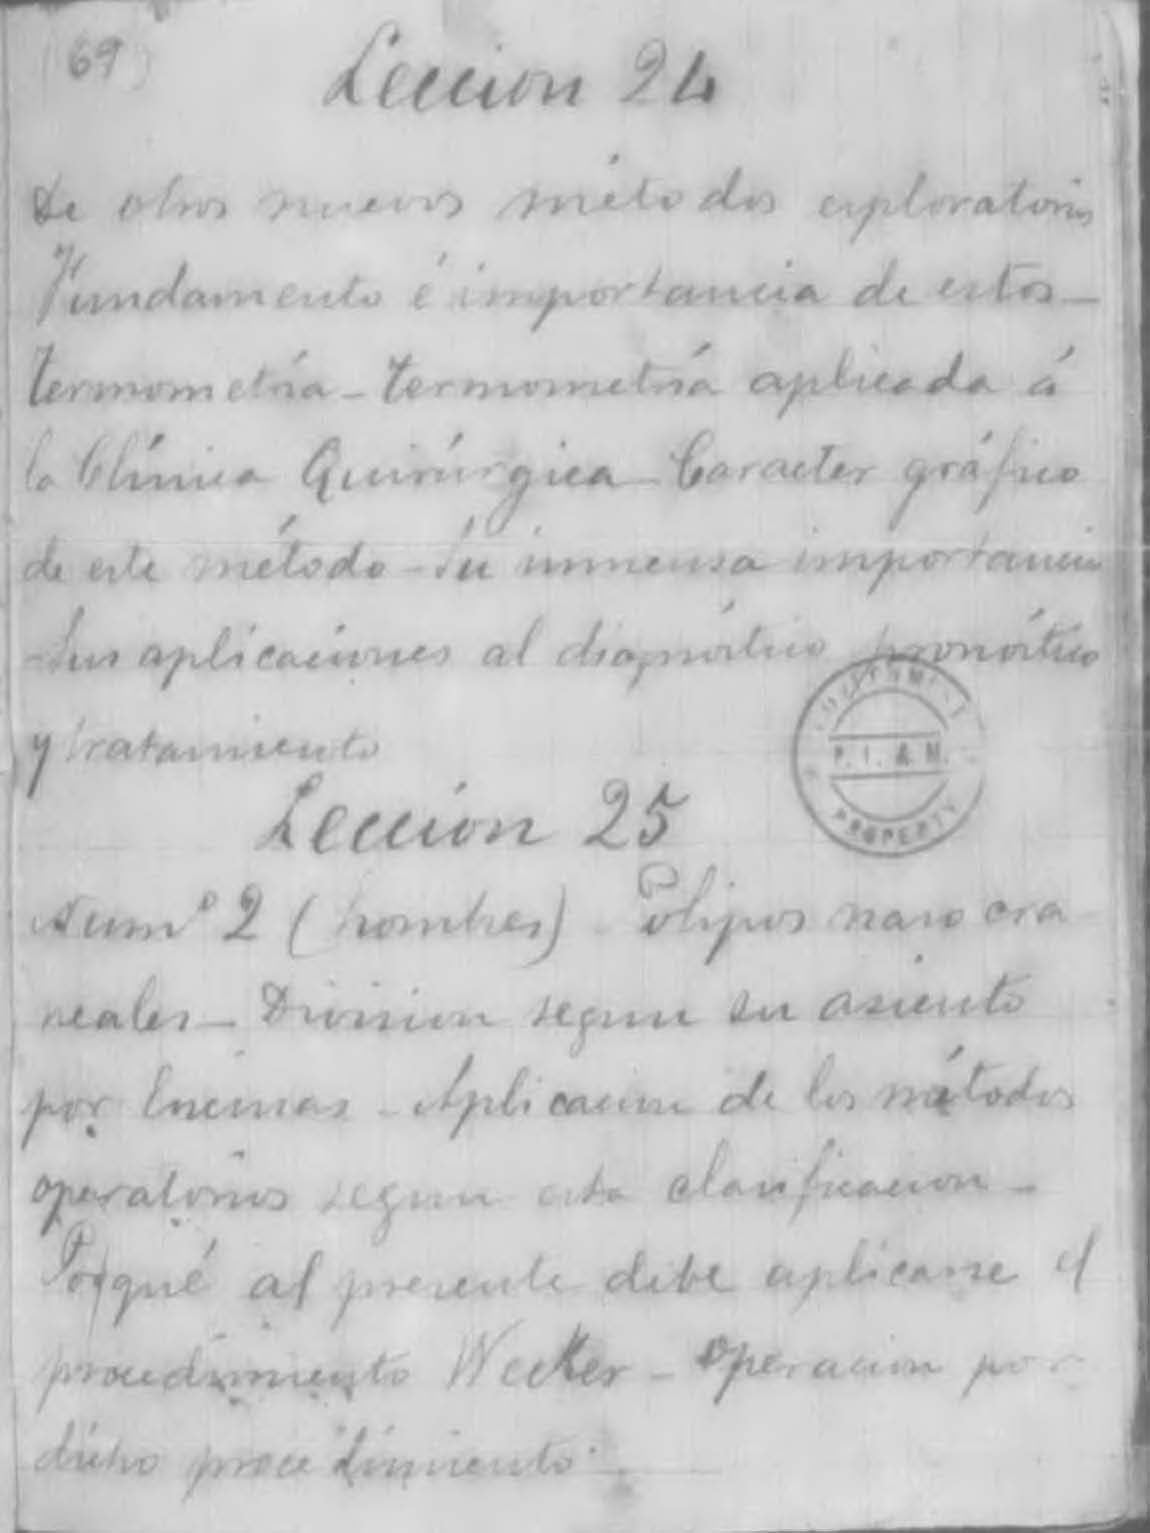 (69)
Leccion 24
De otros nuevos métodos exploratorios
Fundamento é importancia de estos_
termometría_termometría aplicada á
la Clínica Quirúrgica_Caracter gráfico
de este método_Su inmensa importancia
_Sus aplicaciones al diagnóstico, pronóstico
y tratamiento
GOVERNMENT
P. I. & M.
PROPERTY
Leccion 25
Numº 2 (hombres)_Pólipos naso cra
neales_Division segun su asiento
por Encinas_Aplicacion de los métodos
operatorios segun esta clasificacion_
Porqué al presente debe aplicarse el
procedimiento Wecker_Operacion por
dicho procedimiento.